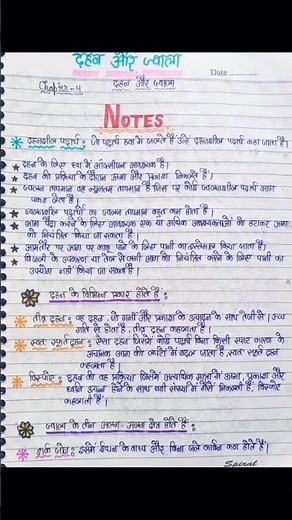 दहन और ज्वाला
Date ............
Chapter - 4 दहन और ज्वाला
NOTES
दहनशील पदार्थ : जो पदार्थ हवा में जलते हैं उन्हें दहनशील पदार्थ कहा जाता है।
दहन के लिए हवा में ऑक्सीजन आवश्यक है।
दहन की प्रक्रिया के दौरान ऊष्मा और प्रकाश निकलते हैं।
ज्वलन तापमान वह न्यूनतम तापमान है जिस पर कोई ज्वलनशील पदार्थ आग
पकड़ लेता है।
ज्वलनशील पदार्थों का ज्वलन तापमान बहुत कम होता है।
आग पैदा करने के लिए आवश्यक एक या अधिक आवश्यकताओं को हटाकर आग
को नियंत्रित किया जा सकता है।
आमतौर पर आग पर काबू पाने के लिए पानी का इस्तेमाल किया जाता है।
बिजली के उपकरणों या तेल से लगी आग को नियंत्रित करने के लिए पानी का
उपयोग नहीं किया जा सकता है।
दहन के विभिन्न प्रकार होते हैं :
तीव्र दहन : वह दहन जो गर्मी और प्रकाश के उत्पादन के साथ तेजी से / उच्च
गति से होता है, तीव्र दहन कहलाता है।
स्वतः स्फूर्त दहन : ऐसा दहन जिसमें कोई पदार्थ बिना किसी स्पष्ट कारण के
अचानक आग की लपटों में बदल जाता है, स्वतः स्फूर्त दहन
कहलाता है।
विस्फोट : दहन की वह प्रक्रिया जिसमें अत्यधिक मात्रा में ऊष्मा, प्रकाश और
ध्वनि उत्पन्न होने के साथ बड़ी संख्या में गैसें निकलती हैं, विस्फोट
कहलाती है।
ज्वाला के तीन अलग-अलग क्षेत्र होते हैं :
डार्क जोन : इसमें ईंधन के वाष्प और बिना जले कार्बन कण होते हैं।
Spiral